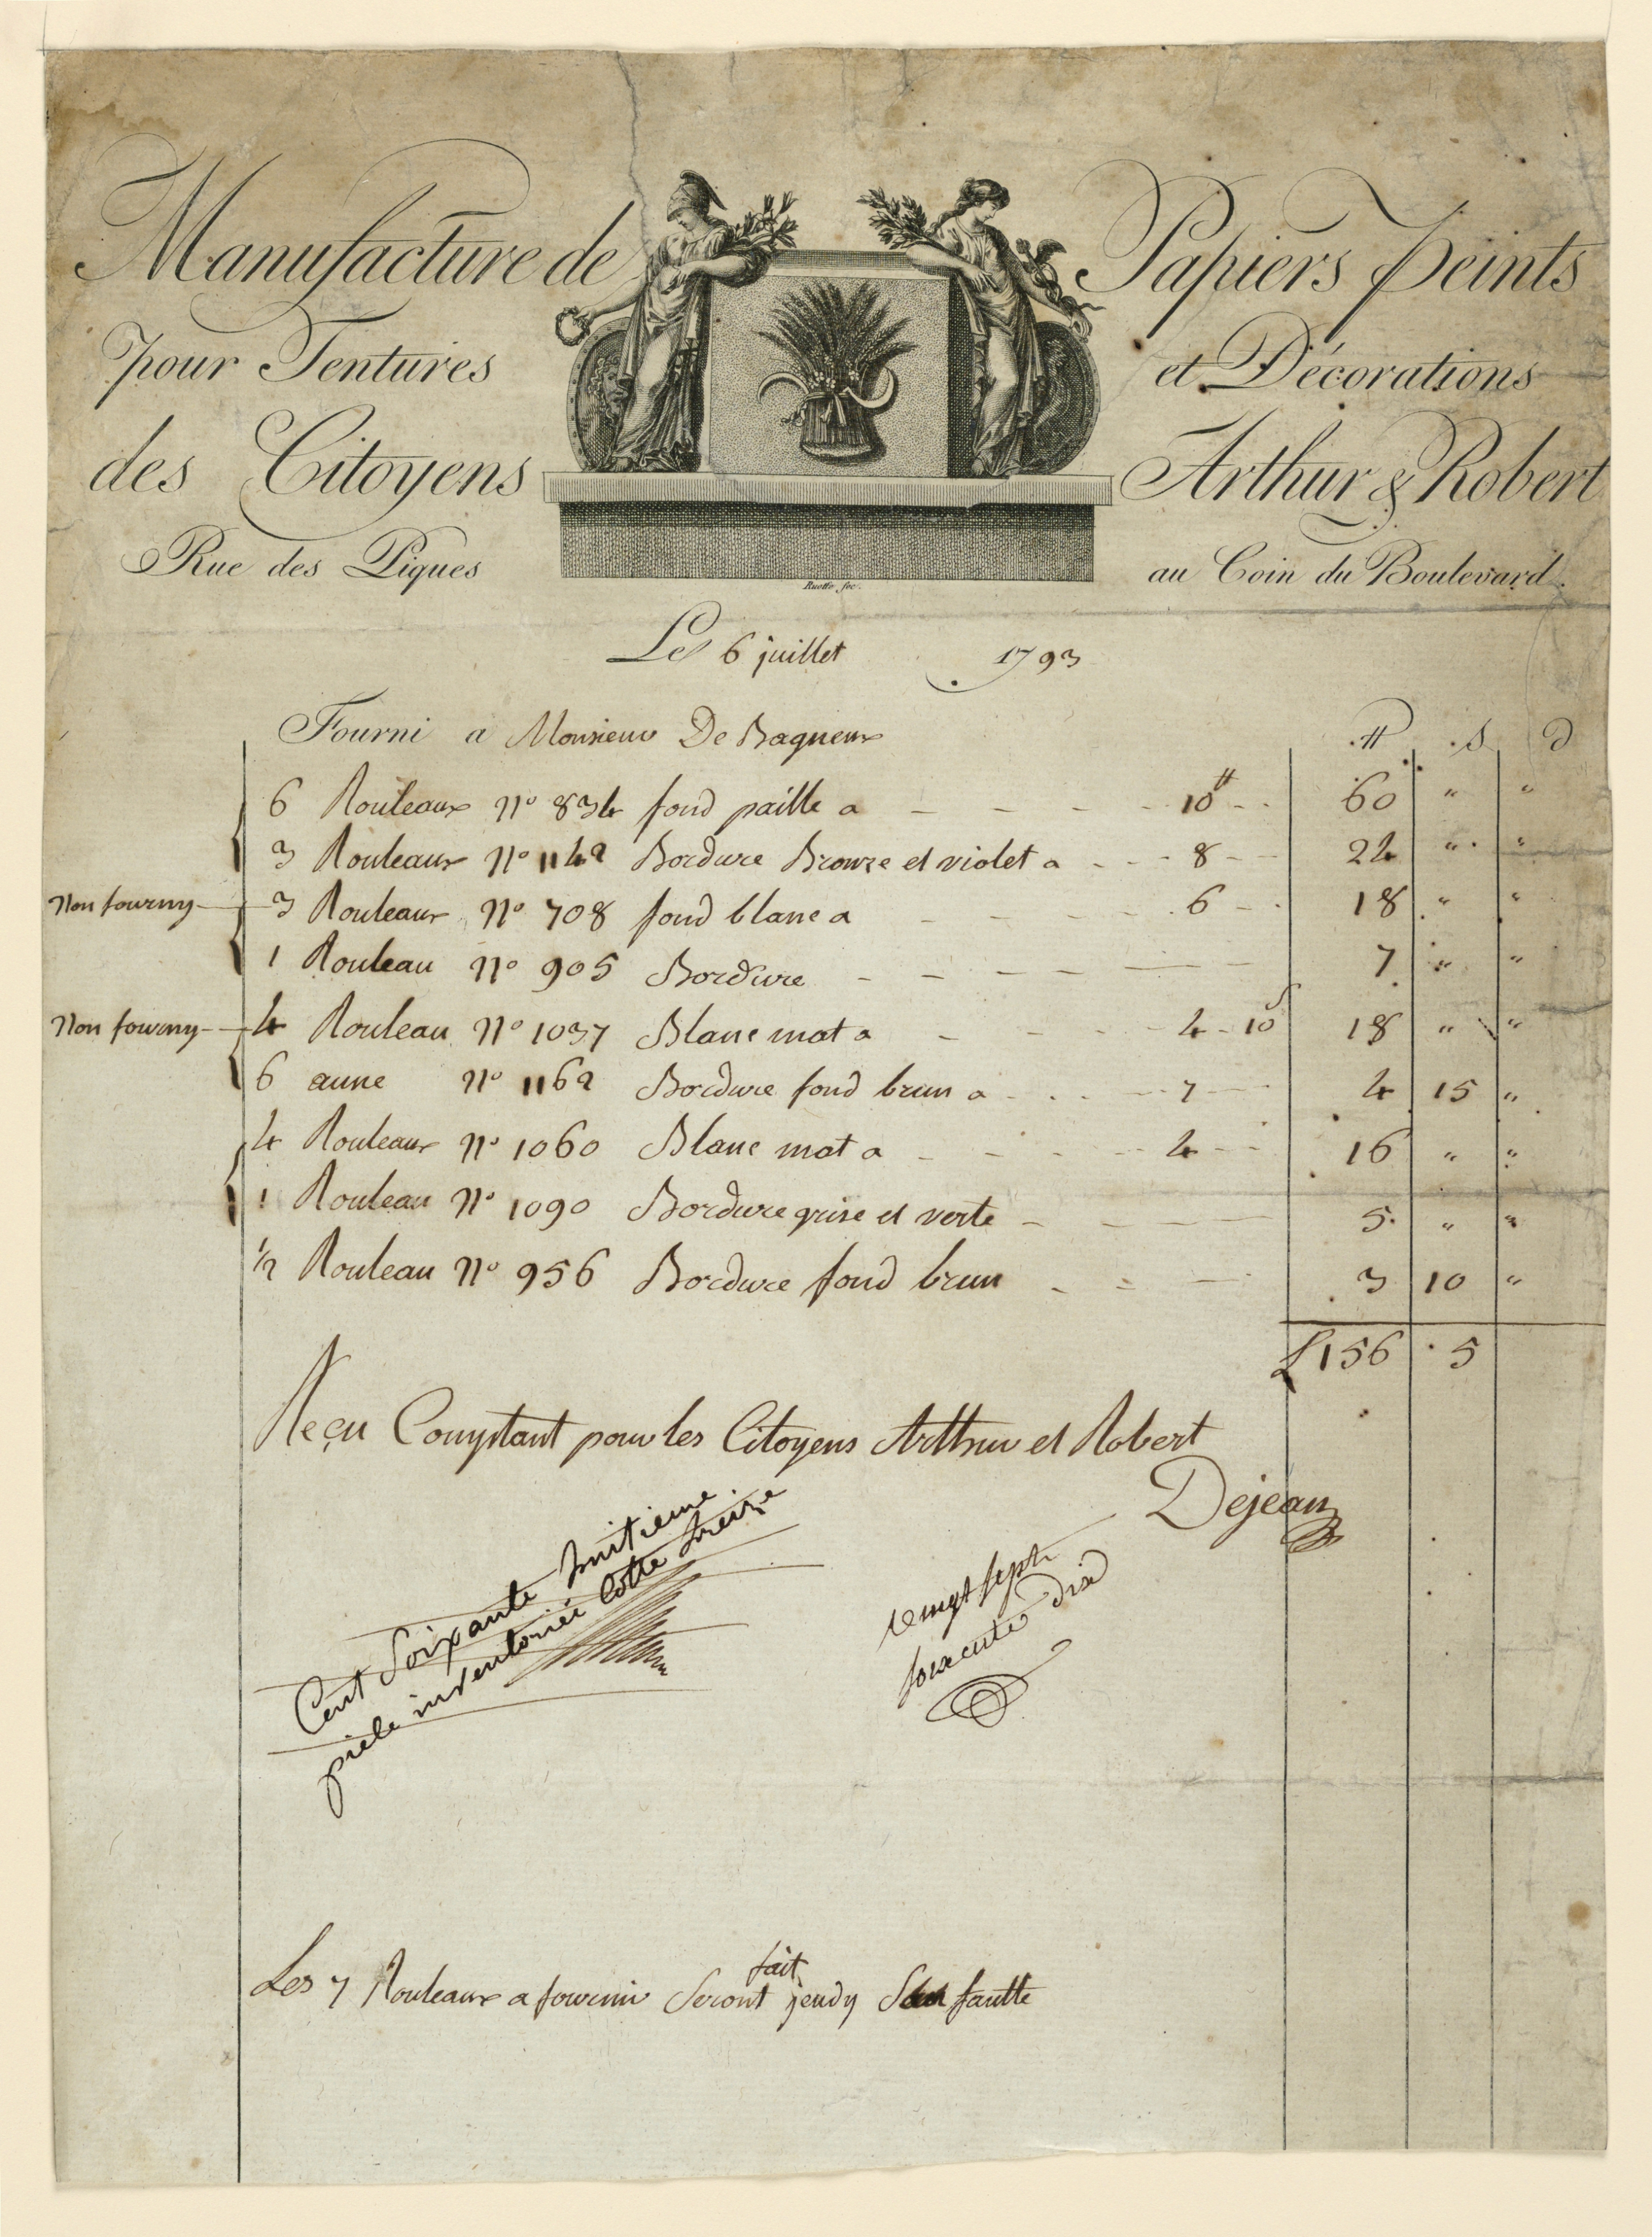 Manufacture de Papiers Peints
pour Tentures et Décorations
des Citoyens Arthur & Robert
Rue des Piques au Coin du Boulevard.
Ruotte fec.
Le 6 juillet 1793
Fourni a Monsieur De Bagneux
₶ s d
6 Rouleaux N° 834 fond paille a 10₶ 60 " "
3 Rouleaux N° 1142 Bordure Bronze et violet a 8 24 " "
Non fourny 3 Rouleaux N° 708 fond blanc a 6 18 " "
1 Rouleau N° 905 Bordure 7 " "
Non fourny 4 Rouleau N° 1037 Blanc mat a 4 10s 18 " "
6 aune N° 1162 Bordure fond brun a 7 4 15 "
4 Rouleaux N° 1060 Blanc mat a 4 16 " "
1 Rouleau N° 1090 Bordure grise et verte 5 " "
1/2 Rouleau N° 956 Bordure fond brun 3 10 "
£156 5
Reçu Comptant pour les Citoyens Arthur et Robert
Dejean
Cent Soixante huitieme
piele inventoriée Cotte treize
vingt sept
soixante dix
Les 7 Rouleaux a fournir Seront fait jeudy San fautte